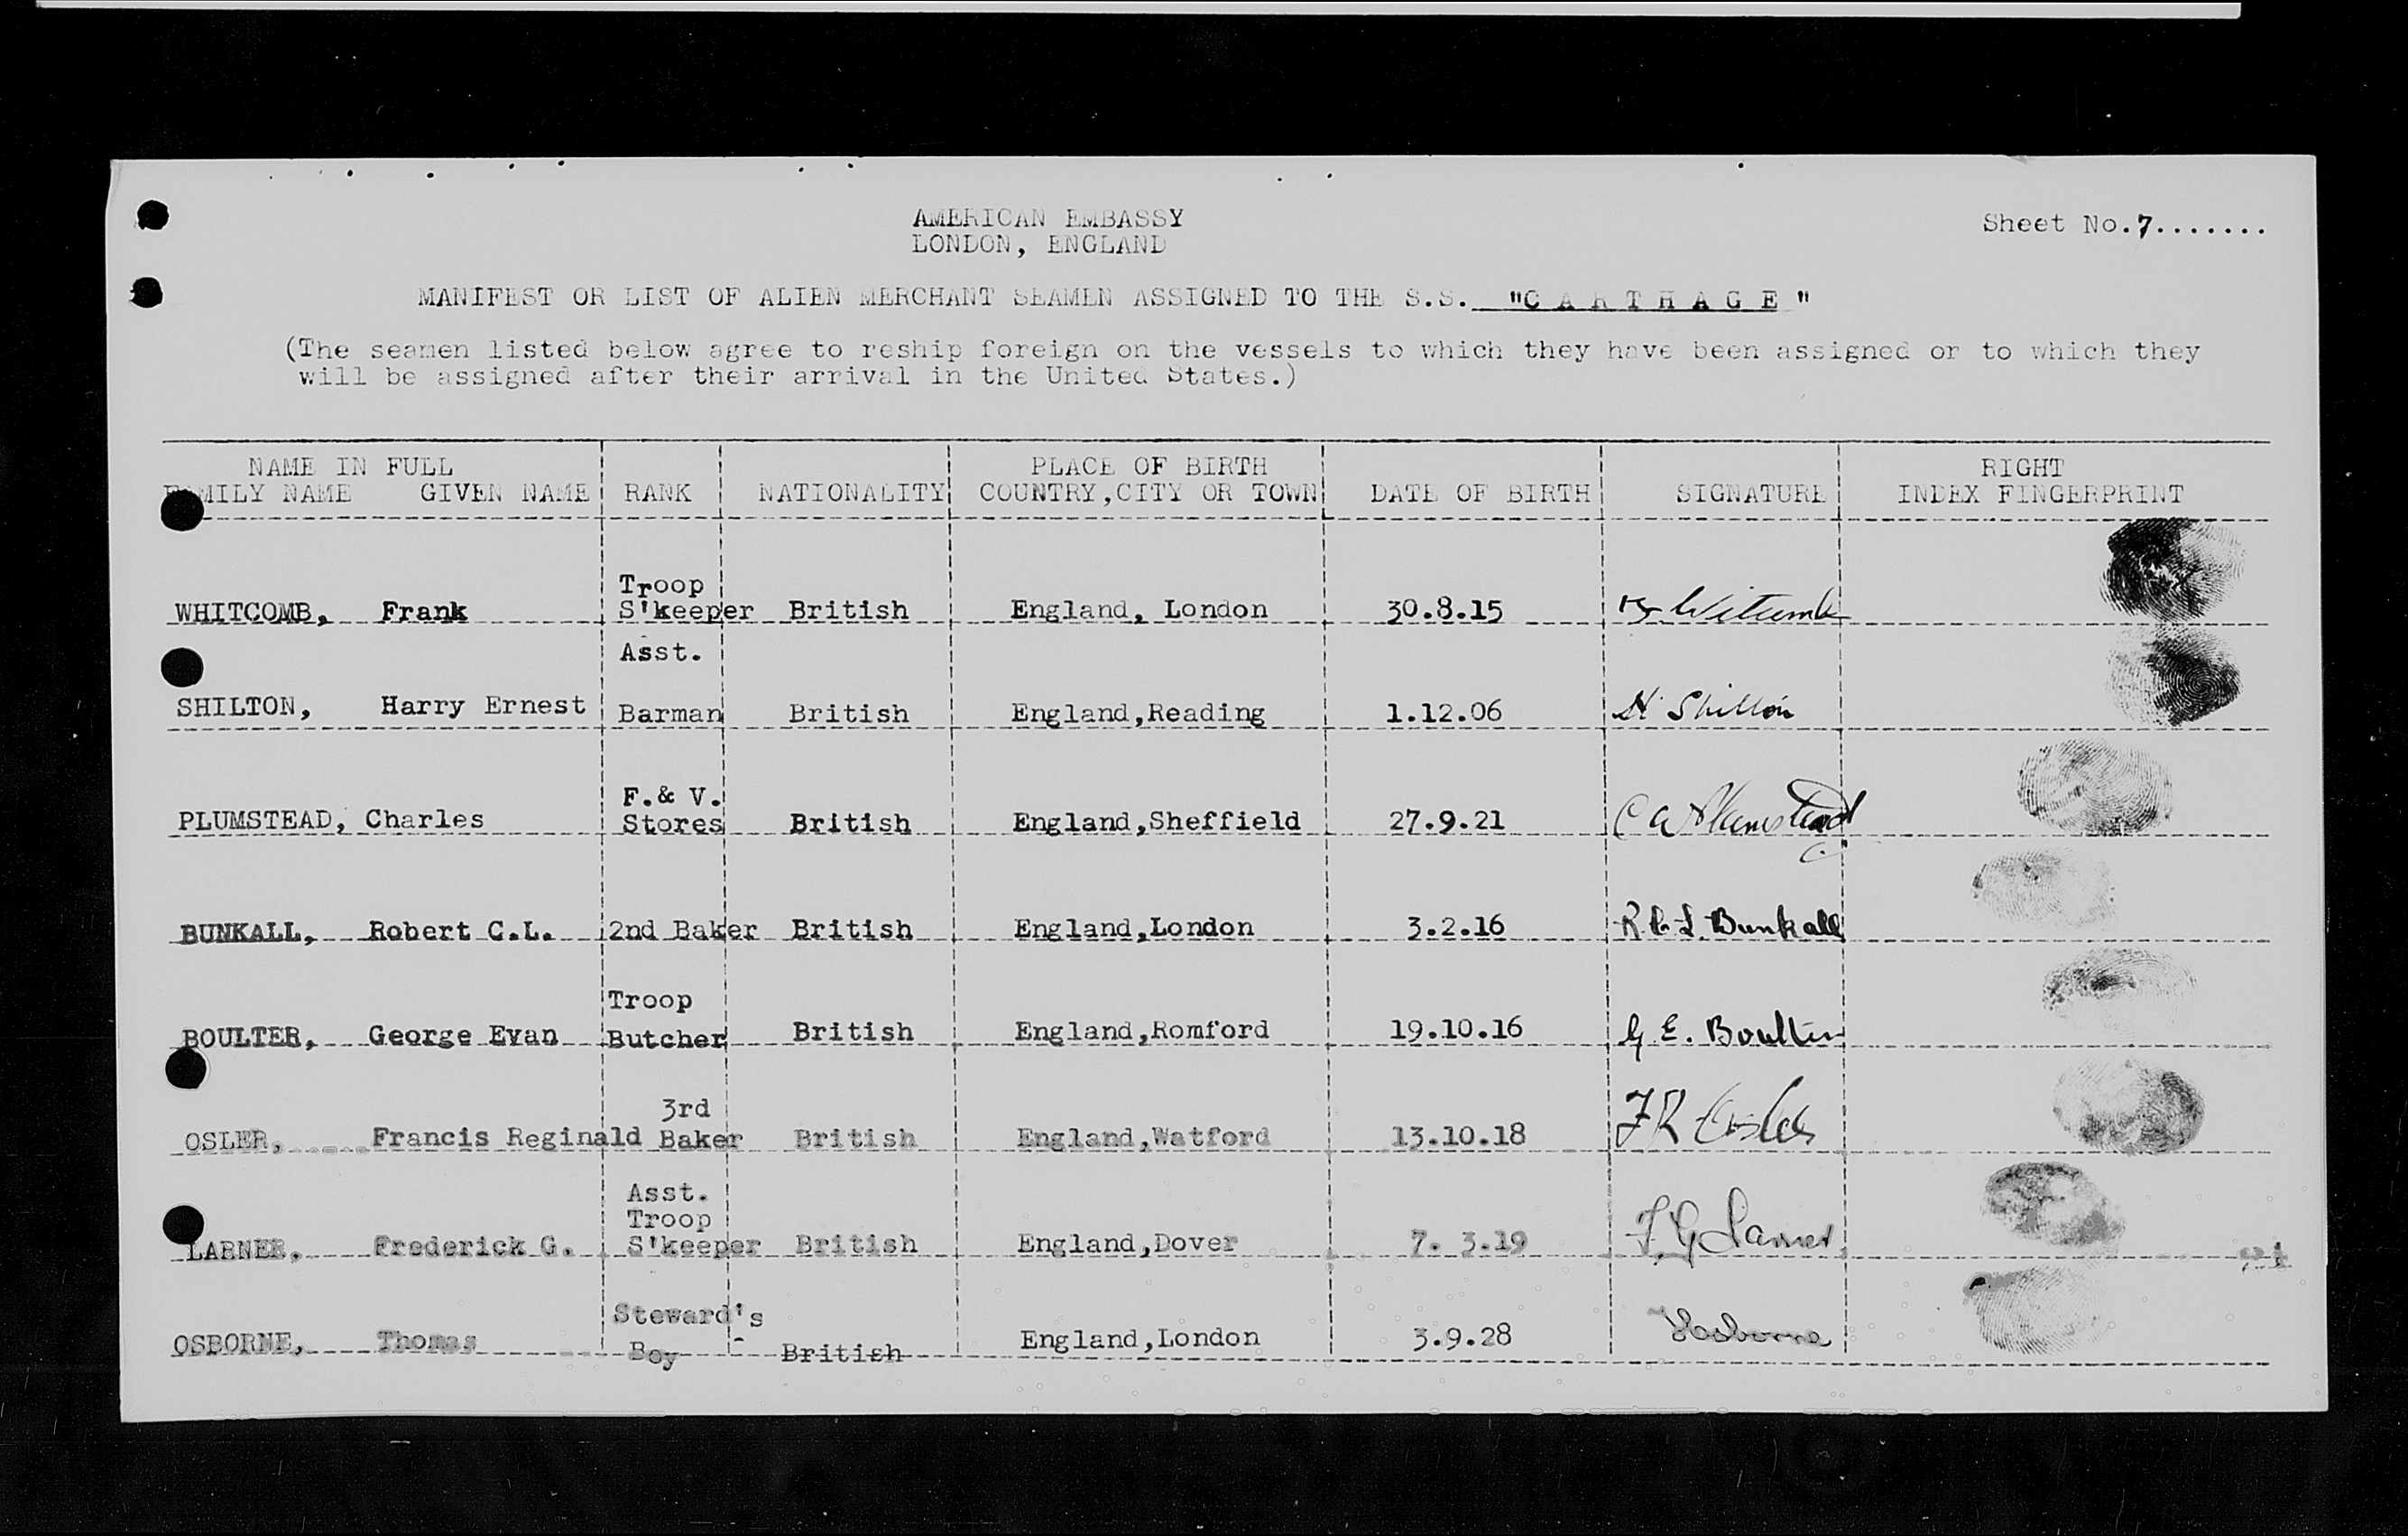 AMERICAN EMBASSY
LONDON, ENGLAND
Sheet No.7.......
MANIFEST OR LIST OF ALIEN MERCHANT SEAMEN ASSIGNED TO THE S.S. "C A R T H A G E"
(The seamen listed below agree to reship foreign on the vessels to which they have been assigned or to which they
will be assigned after their arrival in the United States.)
NAME IN FULL PLACE OF BIRTH RIGHT
FAMILY NAME GIVEN NAME RANK NATIONALITY COUNTRY,CITY OR TOWN DATE OF BIRTH SIGNATURE INDEX FINGERPRINT
Troop
WHITCOMB, Frank S'keeper British England, London 30.8.15
Asst.
SHILTON, Harry Ernest Barman British England,Reading 1.12.06 H Shilton
F.& V.
PLUMSTEAD, Charles Stores British England,Sheffield 27.9.21 C A Plumstead
BUNKALL, Robert C.L. 2nd Baker British England,London 3.2.16 R C L Bunkall
Troop
BOULTER, George Evan Butcher British England,Romford 19.10.16 G. E. Boulter
3rd
OSLER, Francis Reginald Baker British England,Watford 13.10.18 F R Osler
Asst.
Troop
LARNER, Frederick G. S'keeper British England,Dover 7. 3.19 F. G Larner
Steward's
OSBORNE, Thomas Boy British England,London 3.9.28 TOsborne